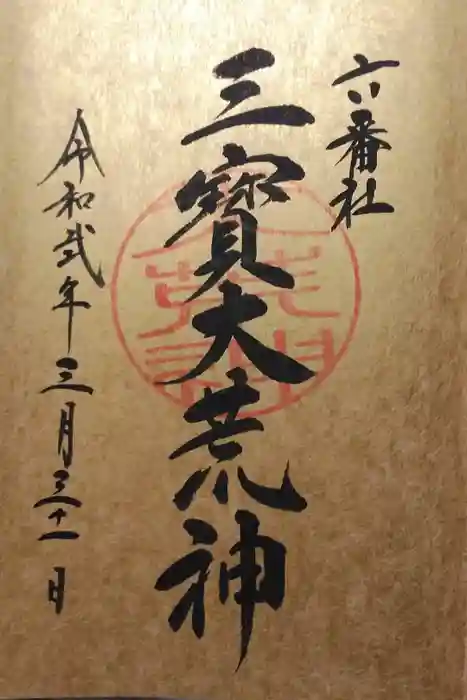 六番社
三寳大荒神
令和弐年三月三十一日